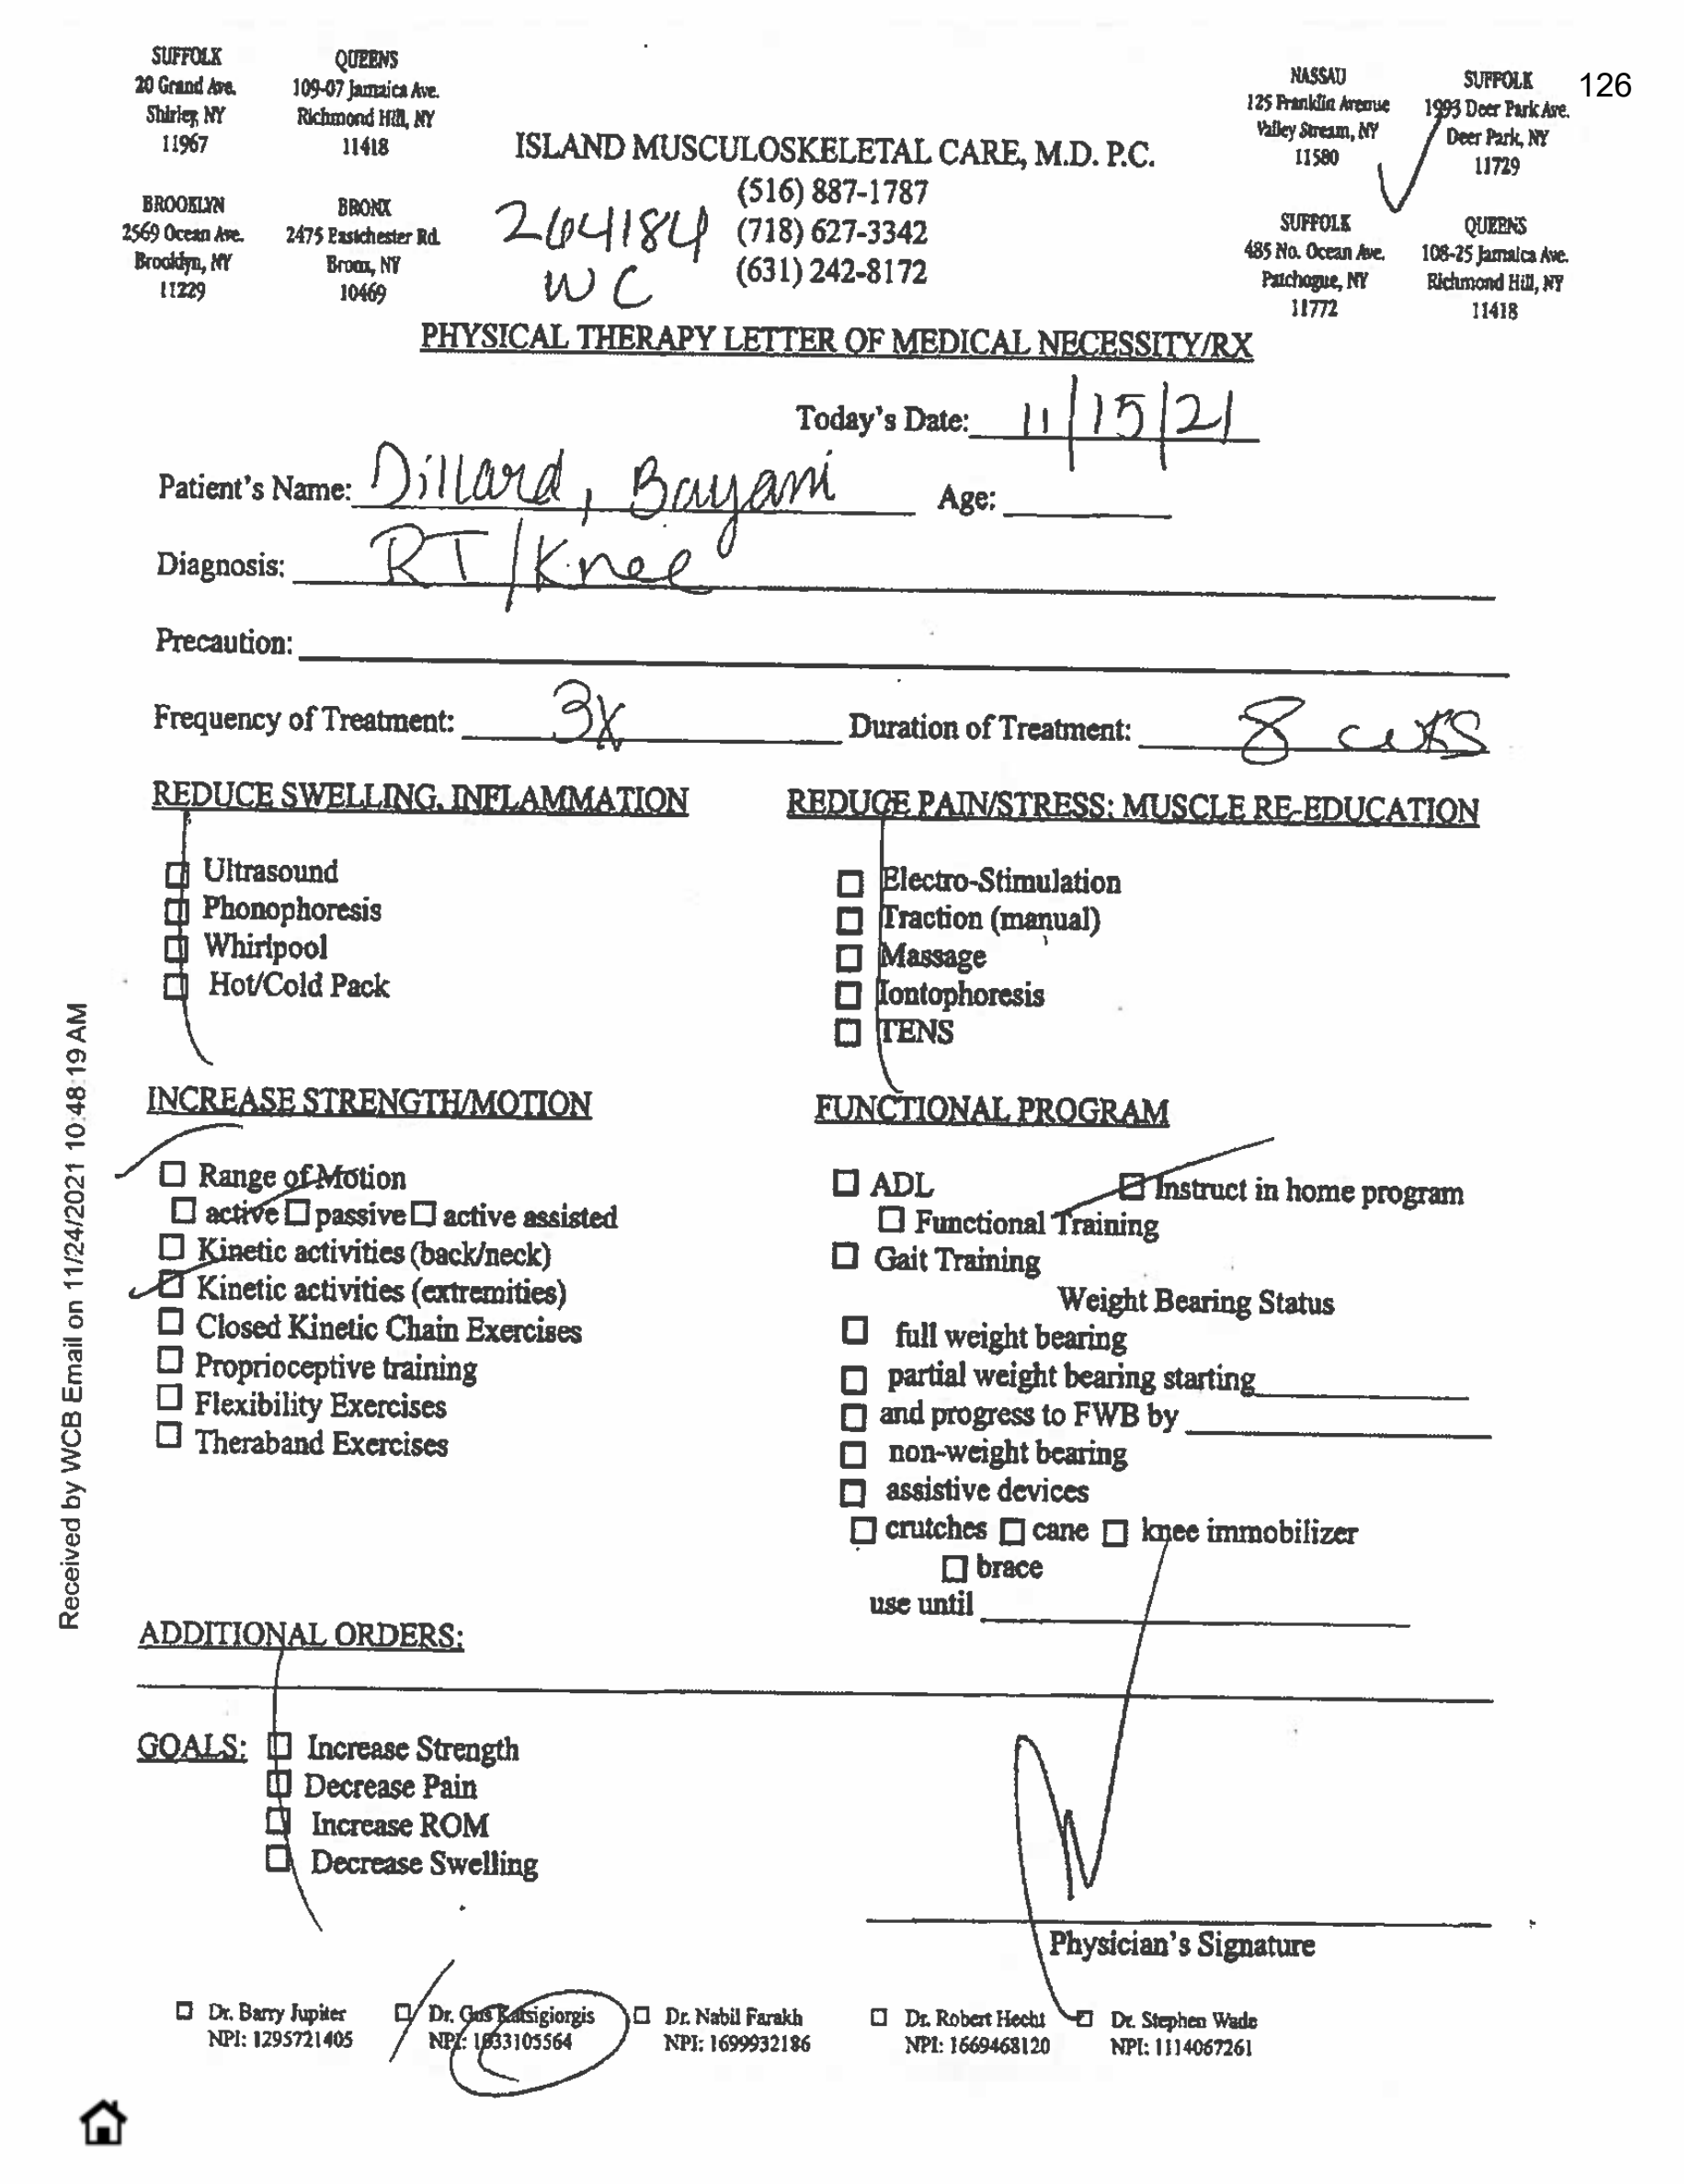 126
SUFFOLK
20 Grand Ave.
Shirley, NY
11967
QUEENS
109-07 Jamaica Ave.
Richmond Hill, NY
11418
NASSAU
125 Franklin Avenue
Valley Stream, NY
11580
SUFFOLK
1993 Deer Park Ave.
Deer Park, NY
11729
BROOKLYN
2569 Ocean Ave.
Brooklyn, NY
11229
BRONX
2475 Eastchester Rd.
Bronx, NY
10469
ISLAND MUSCULOSKELETAL CARE, M.D. P.C.
(516) 887-1787
(718) 627-3342
(631) 242-8172
264184
WC
SUFFOLK
485 No. Ocean Ave.
Patchogue, NY
11772
QUEENS
108-25 Jamaica Ave.
Richmond Hill, NY
11418
PHYSICAL THERAPY LETTER OF MEDICAL NECESSITY/RX
Today's Date: 11/15/21
Patient's Name: Dillard, Bayani Age:
Diagnosis: RT/Knee
Precaution:
Frequency of Treatment: 3x Duration of Treatment: 8 wks
REDUCE SWELLING, INFLAMMATION
Ultrasound
Phonophoresis
Whirlpool
Hot/Cold Pack
REDUCE PAIN/STRESS: MUSCLE RE-EDUCATION
Electro-Stimulation
Traction (manual)
Massage
Iontophoresis
TENS
INCREASE STRENGTH/MOTION
Range of Motion
active passive active assisted
Kinetic activities (back/neck)
Kinetic activities (extremities)
Closed Kinetic Chain Exercises
Proprioceptive training
Flexibility Exercises
Theraband Exercises
FUNCTIONAL PROGRAM
ADL Instruct in home program
Functional Training
Gait Training
Weight Bearing Status
full weight bearing
partial weight bearing starting
and progress to FWB by
non-weight bearing
assistive devices
crutches cane knee immobilizer
brace
use until
ADDITIONAL ORDERS:
GOALS: Increase Strength
Decrease Pain
Increase ROM
Decrease Swelling
Physician's Signature
Dr. Barry Jupiter
NPI: 1295721405
Dr. Gus Katsigiorgis
NPI: 1033105564
Dr. Nabil Farakh
NPI: 1699932186
Dr. Robert Hecht
NPI: 1669468120
Dr. Stephen Wade
NPI: 1114067261
Received by WCB Email on 11/24/2021 10:48:19 AM